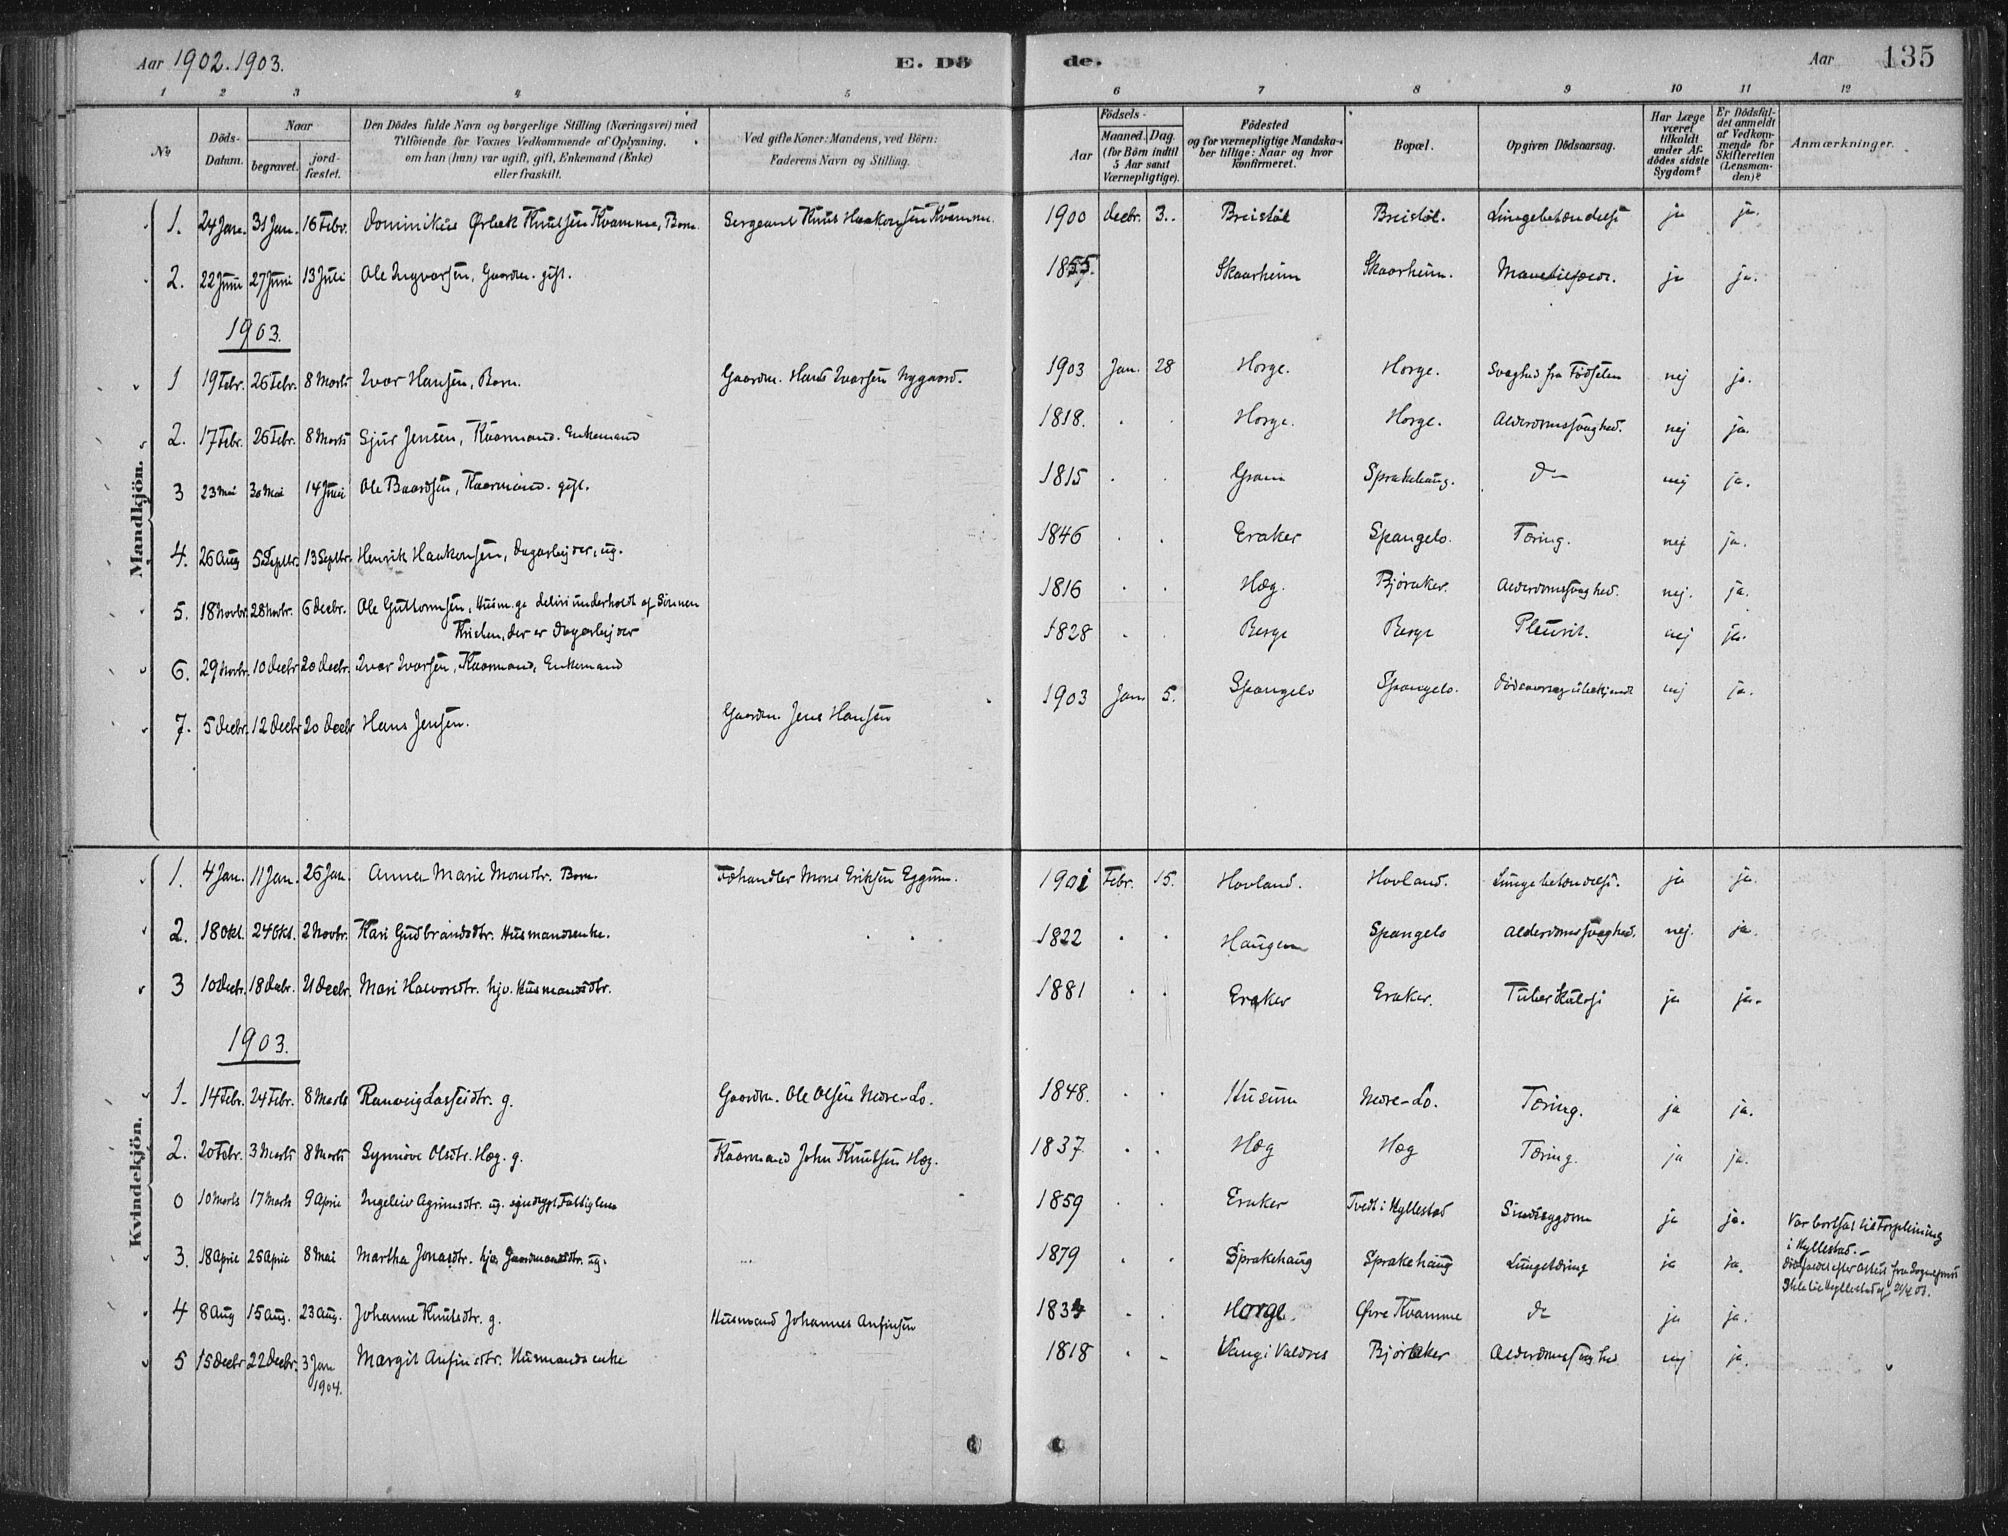 Aar 1902. 1903.
E. Dö
de.
Aar
135
1 2 3 4 5 6 7 8 9 10 11 12
№
Döds-Datum.
Naar
begravet.
jord-fæstet.
Den Dödes fulde Navn og borgerlige Stilling (Næringsvei) med
Tilföiende for Voxnes Vedkommende af Oplysning,
om han (hun) var ugift, gift, Enkemand (Enke)
eller fraskilt.
Ved gifte Koner: Mandens, ved Börn:
Faderens Navn og Stilling.
Födsels-
Aar
Maaned. Dag.
(for Börn indtil
5 Aar samt
Værnepligtige).
Födested
og for værnepligtige Mandska-
ber tillige: Naar og hvor
konfirmeret.
Bopæl.
Opgiven Dödsaarsag.
Har Læge
været
tilkaldt
under Af-
dödes sidste
Sygdom?
Er Dödsfal-
det anmeldt
af Vedkom-
mende for
Skifteretten
(Lensman-
den)?
Anmærkninger.
Mandkjön.
1. 24 Jan. 31 Jan. 16 Febr. Dominikus Ørbæk Knutsen Kvamme, Barn. Sergeant Knut Haakonsen Kvamme. 1900 Decbr. 3. Breistøl Breistøl. Lungebetændelse ja ja.
2. 22 Juni 27 Juni 13 Juli Ole Ingvarsen, Gaardm. gift. 1855. Skaarheim Skaarheim. Mavetilfælde. ja ja.
1903.
1 19 Febr. 26 Febr. 8 Marts Ivar Hansen, Barn. Gaardm. Hans Ivarsen Nygaard. 1903 Jan. 28 Horge. Horge. Svaghed fra Fødselen nej ja.
2. 17 Febr. 26 Febr. 8 Marts Sjur Jensen, Kaarmand. Enkemand 1818. Horge. Horge. Alderdomssvaghed. nej ja.
3 23 Mai 30 Mai 14 Juni Ole Baardsen, Kaarmand. gift. 1815 Gram Sprakehaug. do nej ja.
4. 26 Aug 5 Septbr. 13 Septbr. Henrik Haakonsen, Dagarbejder, ug. 1846 Eraker Spangelo. Tæring. nej ja.
5. 18 Novbr. 28 Novbr. 6 Decbr. Ole Guttormsen, Husm. g. underholdt af Sønnen
Kristen, der er Dagarbejder 1816 Hæg. Bjøraker. Alderdomssvaghed. nej. ja.
6. 29 Novbr. 10 Decbr. 20 Decbr. Ivar Ivarsen, Kaarmand, Enkemand 1828 Berge Berge Pleurit. nej ja.
7. 5 Decbr. 12 Decbr 20 Decbr Hans Jensen. Gaardm. Jens Hansen 1903 Jan 5. Spangelo Spangelo. Dødsaarsag ubekjendt nej ja.
Kvindekjön.
1. 4 Jan. 11 Jan. 26 Jan. Anna Marie Monsdtr. Barn. Fæhandler Mons Eriksen Eggum. 1901 Febr. 15. Hovland. Hovland. Lungebetændelse. ja ja.
2. 18 Okt. 24 Okt. 2 Novbr. Kari Gudbrandsdtr. Husmandsenke. 1822 Haugen Spangelo Alderdomssvaghed. nej. ja.
3 10 Decbr. 18 Decbr. 21 Decbr. Mari Halvorsdtr. hjv. Husmandsdtr. 1881 Eraker Eraker. Tuberkulose ja ja.
1903.
1. 14 Febr. 24 Febr. 8 Marts Ranveig Lassesdtr. g. Gaardm. Ole Olsen Nedre-Lo. 1848. Husum Nedre-Lo. Tæring. ja ja.
2. 20 Febr. 3 Marts 8 Marts Synnøve Olsdtr. Hæg. g. Kaarmand John Knutsen Hæg. 1837 Hæg Hæg Tæring. ja ja.
0 10 Marts 17 Marts 9 April Ingeleiv Agrimsdtr. ug. sindssygt Fattiglem 1859 Eraker Tvedt i Hyllestad Sindssygdom ja ja. Var bortsat til Forpleining
i Hyllestad. —
3. 18 April 25 April 8 Mai Martha Jonasdtr. hjv. Gaardmandsdtr. ug. 1879 Sprakehaug Sprakehaug Lungetæring ja ja.
4 8 Aug 15 Aug. 23 Aug. Johanne Knutsdtr. g. Husmand Johannes Anfinsen 1834 Horge Øvre Kvamme do ja ja.
5 15 Decbr 22 Decbr. 3 Jan
1904. Margit Anfinsdtr. Husmandsenke 1818 Vang i Valdres Bjøraker Alderdomssvaghed nej ja.